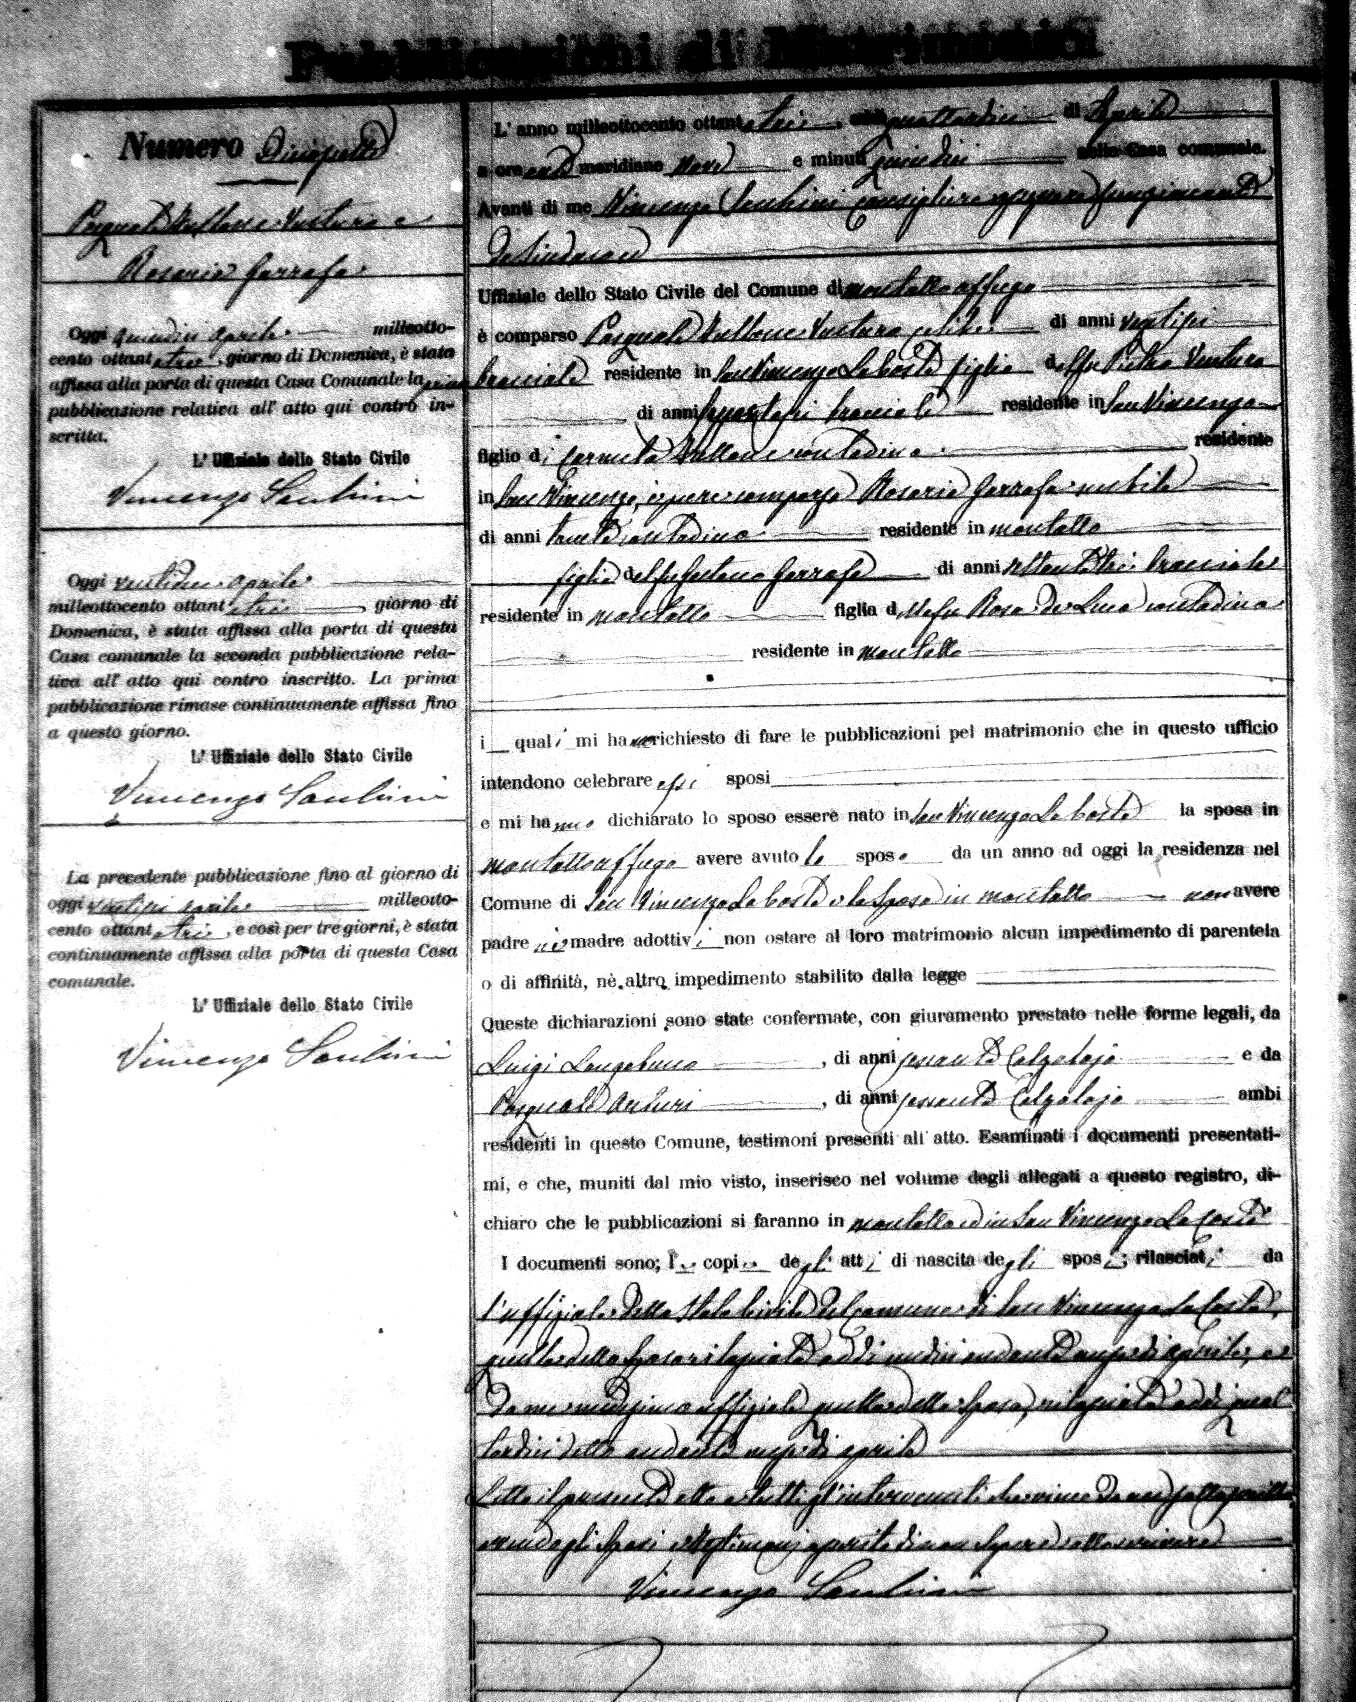 Pubblicazioni di Matrimonio
Numero Diciasette
Pasquale Ventura e
Rosaria Garrafa
Oggi quindici aprile milleotto-
cento ottantatre, giorno di Domenica, è stata
affissa alla porta di questa Casa Comunale la prima
pubblicazione relativa all' atto qui contro in-
scritta.
L' Uffiziale dello Stato Civile
Vincenzo
Oggi ventidue aprile
milleottocento ottantatre, giorno di
Domenica, è stata affissa alla porta di questa
Casa comunale la seconda pubblicazione rela-
tiva all' atto qui contro inscritto. La prima
pubblicazione rimase continuamente affissa fino
a questo giorno.
L' Uffiziale dello Stato Civile
Vincenzo
La precedente pubblicazione fino al giorno di
oggi aprile milleotto-
cento ottantatre, e così per tre giorni, è stata
continuamente affissa alla porta di questa Casa
comunale.
L' Uffiziale dello Stato Civile
Vincenzo
L' anno milleottocento ottantatre, addì quattordici di Aprile
a ore anti meridiane nove e minuti quindici nella Casa comunale.
Avanti di me Vincenzo Consigliere funzionante
da Sindaco
Uffiziale dello Stato Civile del Comune di Montalto uffugo
è comparso Pasquale Ventura celibe di anni
bracciale residente in San Vincenzo La Costa figlio del fu Pietro Ventura
di anni bracciale residente in San Vincenzo
figlio di Carmela contadina residente
in San Vincenzo, è pure comparsa Rosaria Garrafa nubile
di anni trenta contadina residente in Montalto
figlia del fu Garrafa di anni settantatre bracciale
residente in Montalto figlia della fu Rosa De Luca contadina
residente in Montalto
i quali mi hanno richiesto di fare le pubblicazioni pel matrimonio che in questo ufficio
intendono celebrare essi sposi
e mi hanno dichiarato lo sposo essere nato in San Vincenzo La Costa la sposa in
Montalto uffugo avere avuto lo sposo da un anno ad oggi la residenza nel
Comune di San Vincenzo La Costa e la sposa in Montalto non avere
padre nè madre adottivi non ostare al loro matrimonio alcun impedimento di parentela
o di affinità, nè altro impedimento stabilito dalla legge
Queste dichiarazioni sono state confermate, con giuramento prestato nelle forme legali, da
Luigi Langobucco, di anni sessanta Calzolajo e da
Pasquale Arturi, di anni sessanta Calzolajo ambi
residenti in questo Comune, testimoni presenti all' atto. Esaminati i documenti presentati-
mi, e che, muniti dal mio visto, inserisco nel volume degli allegati a questo registro, di-
chiaro che le pubblicazioni si faranno in Montalto ed in San Vincenzo La Costa
I documenti sono; Le copie degli atti di nascita degli sposi; rilasciati da
l'uffiziale dello Stato Civile del comune di San Vincenzo La Costa,
quella dello sposo rilasciata addì undici andante mese di aprile, e
da me medesimo uffiziale quella della sposa, rilasciata addì quat
tordici detto andante mese di aprile
Letto il presente atto a tutti gl'intervenuti che viene da me sottoscritto
avendo gli sposi e testimonj asserito di non sapere sottoscrivere
Vincenzo